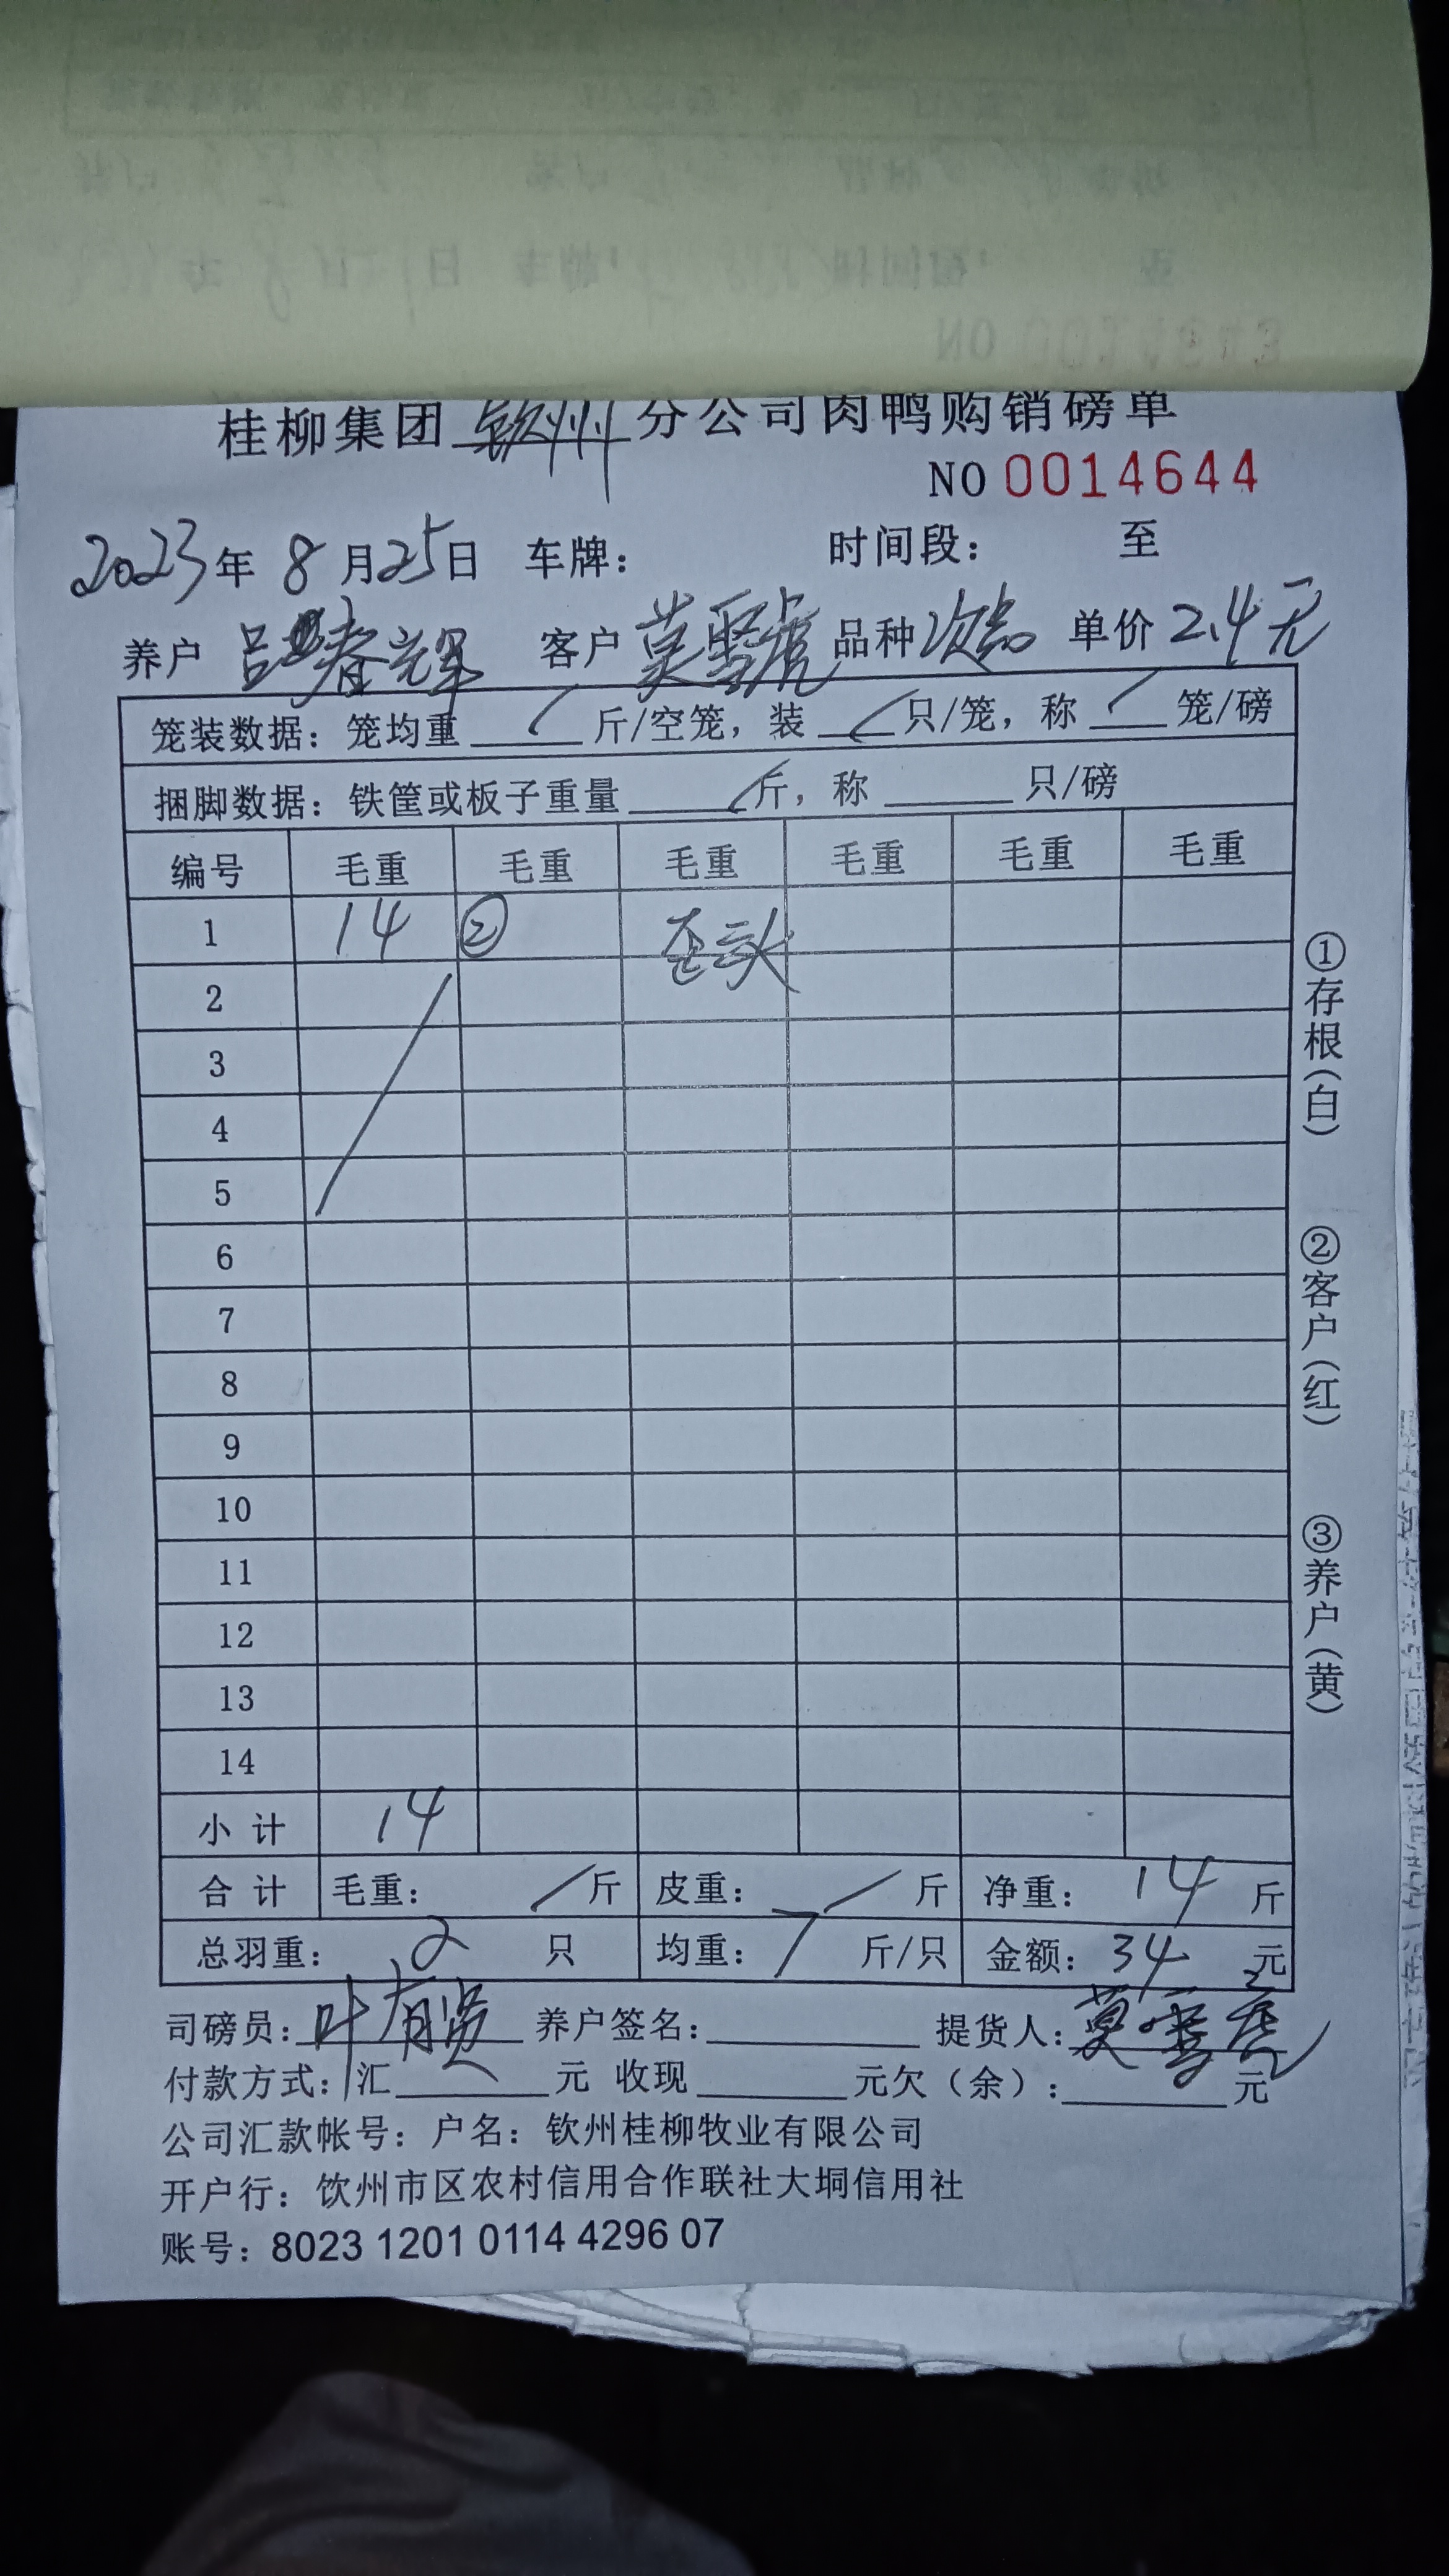 桂柳集团钦州分公司肉鸭购销磅单
NO 0014644
2023年 8月25日 车牌: 时间段: 至
养户 吕春辉 客户 莫雪虎 品种 次品 单价 2.4元
笼装数据: 笼均重 / 斤/空笼, 装 / 只/笼, 称 / 笼/磅
捆脚数据: 铁筐或板子重量 / 斤, 称 只/磅
编号 毛重 毛重 毛重 毛重 毛重 毛重
1 14 ② 歪头
2
3
4
5
6
7
8
9
10
11
12
13
14
小计 14
合计 毛重: / 斤 皮重: / 斤 净重: 14 斤
总羽重: 2 只 均重: 7 斤/只 金额: 34 元
司磅员: 叶有贤 养户签名: 提货人: 莫雪虎
付款方式: 汇 元 收现 元欠(余): 元
公司汇款帐号: 户名: 钦州桂柳牧业有限公司
开户行: 饮州市区农村信用合作联社大垌信用社
账号: 8023 1201 0114 4296 07
①存根(白)
②客户(红)
③养户(黄)